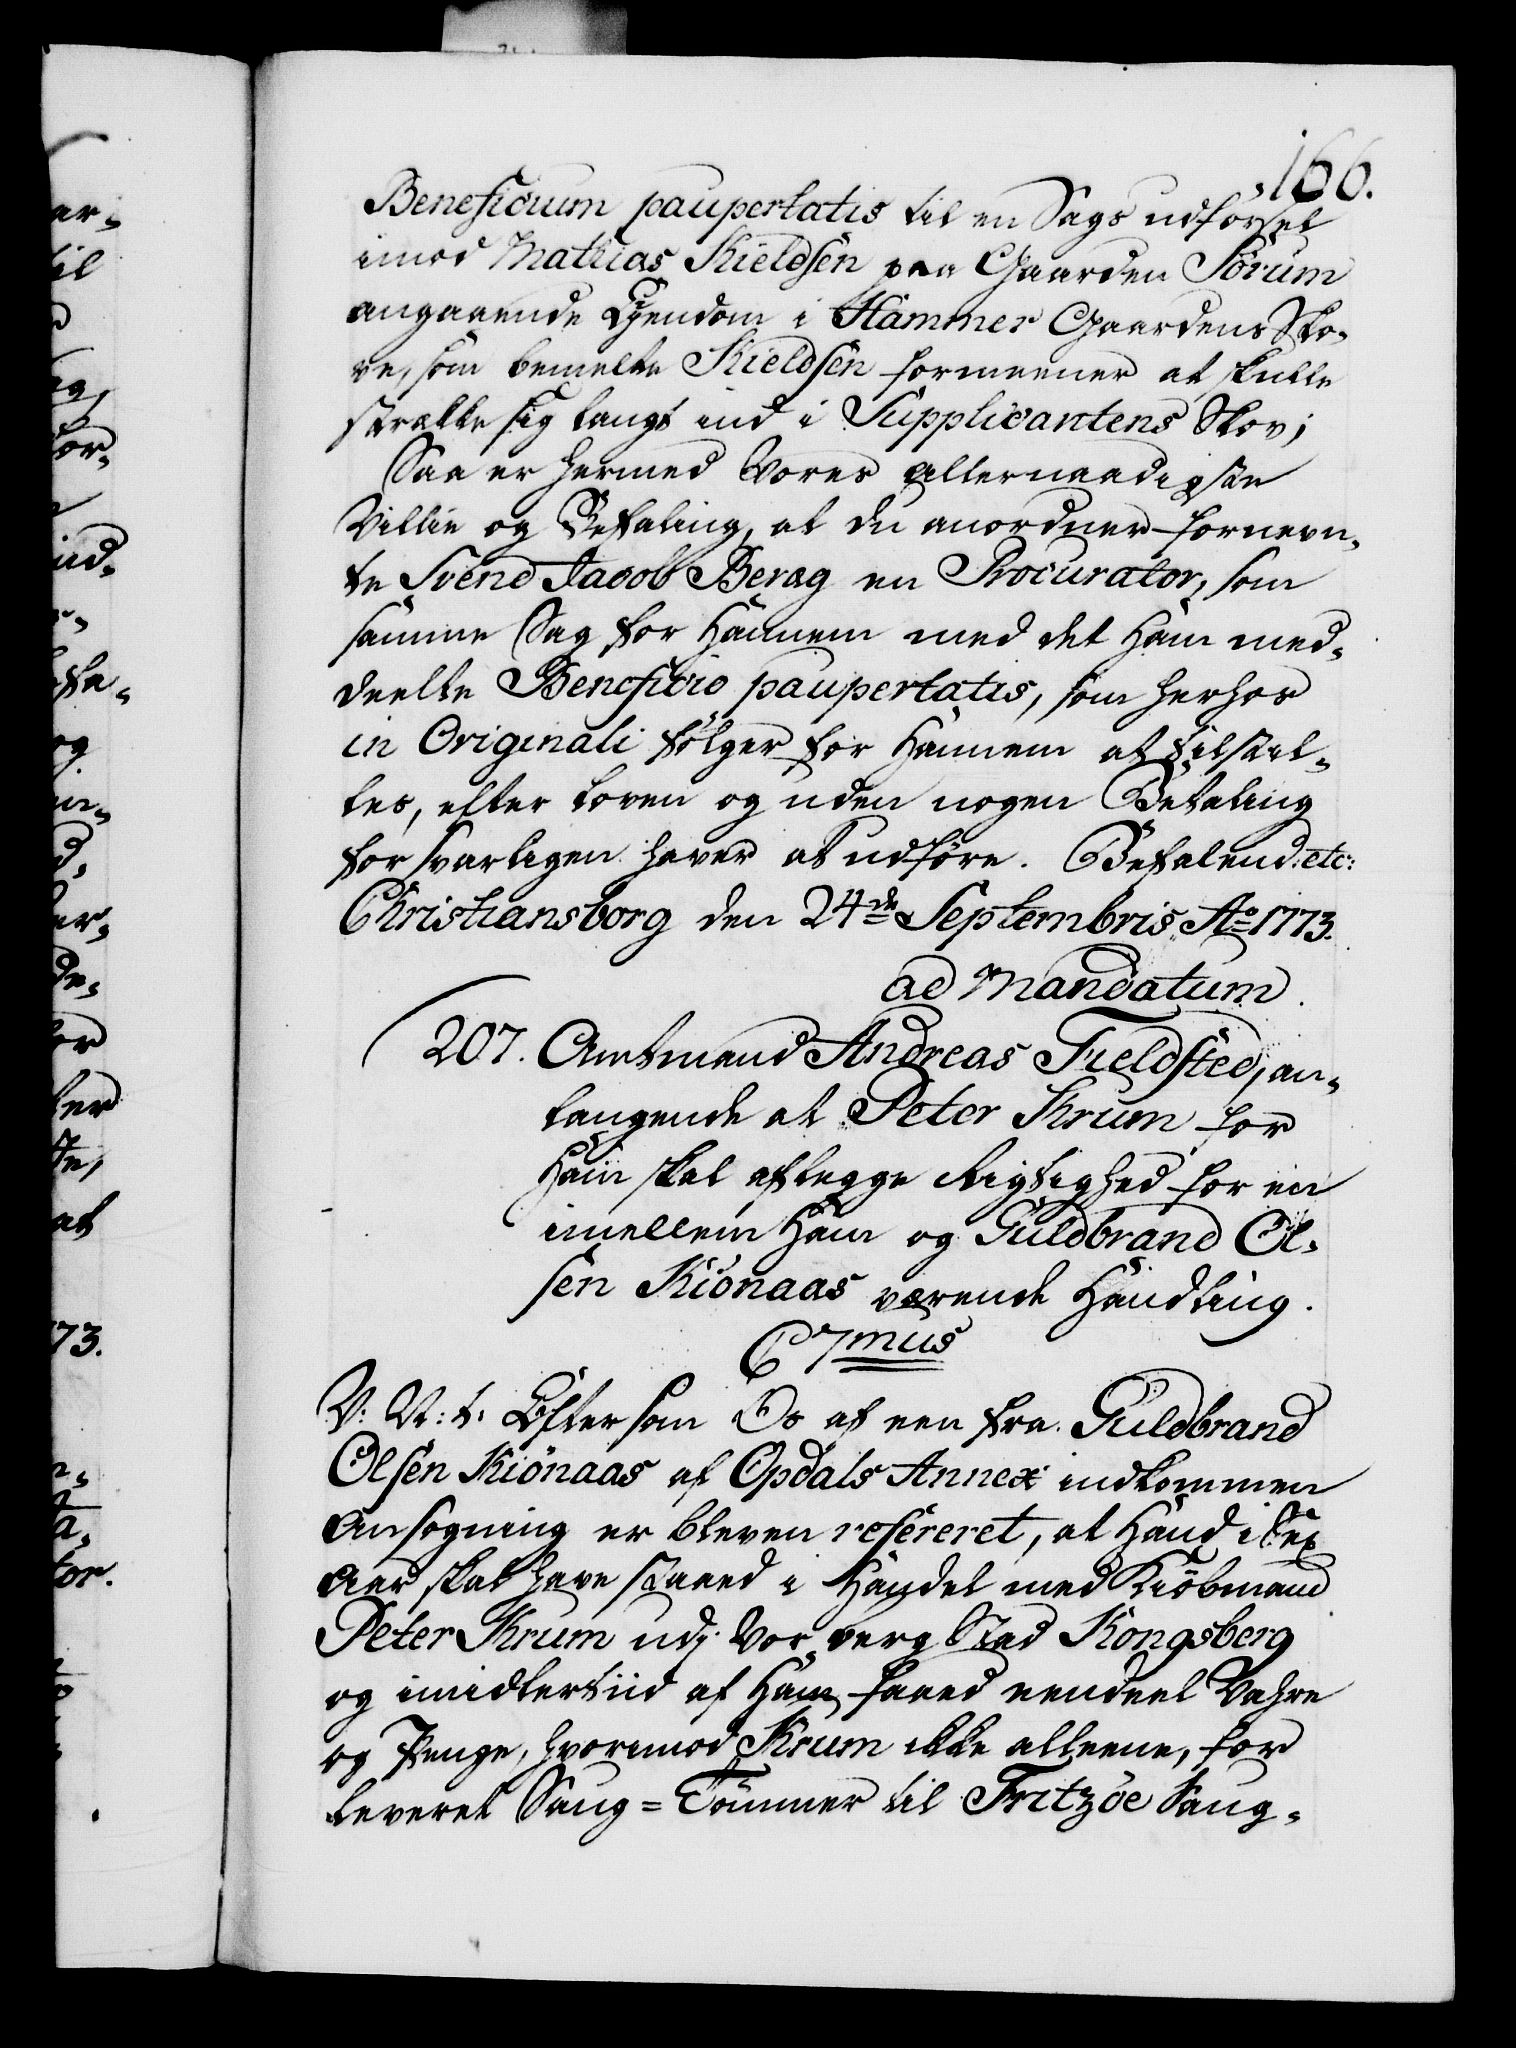 166.
Beneficium paupertatis til en Sags udførsel
imod Mathias Kieldsen paa Gaarden Sørum
angaaende Ejendom i Hammer Gaardens Sko-
ve, som bemelte Kieldsen formeener at skulle
strække sig langt ind i Supplicantens Skov;
Saa er hermed Vores allernaadigste
Villie og Befaling, at du anordner fornevn-
te Svend Jacob Berag en Procurator, som
samme Sag for Hannem med det Ham med-
deelte Beneficio paupertatis, som herhos
in Originali følger for Hannem at tilstil-
les, efter Loven og uden nogen Betaling
forsvarligen haver at udføre. Befalend: etc:
Christiansborg den 24de Septembris Ao 1773.
ad Mandatum.
207. Amtmand Andreas Fieldsted, an-
langende at Peter Krum for
Ham skal aflegge Rigtighed for en
imellem Ham og Guldbrand Ol-
sen Kiönaas værende Handling.
C 7mus
V: N: t: Eftersom Os af een fra Guldbrand
Olsen Kiönaas af Opdals Annex indkommen
Ansøgning er bleven refereret, at Hand i Sex
Aar skal have staaed i Handel med Kiöbmand
Peter Krum udj Vor Berg Stad Kongsberg
og imidlertiid af Ham faaed eendeel Vahre
og Penge, hvorimod Krum ikke alleene, for
leveret Saug=Tömmer til Fritzöe Saug-
er-
til
73.
at
tor.